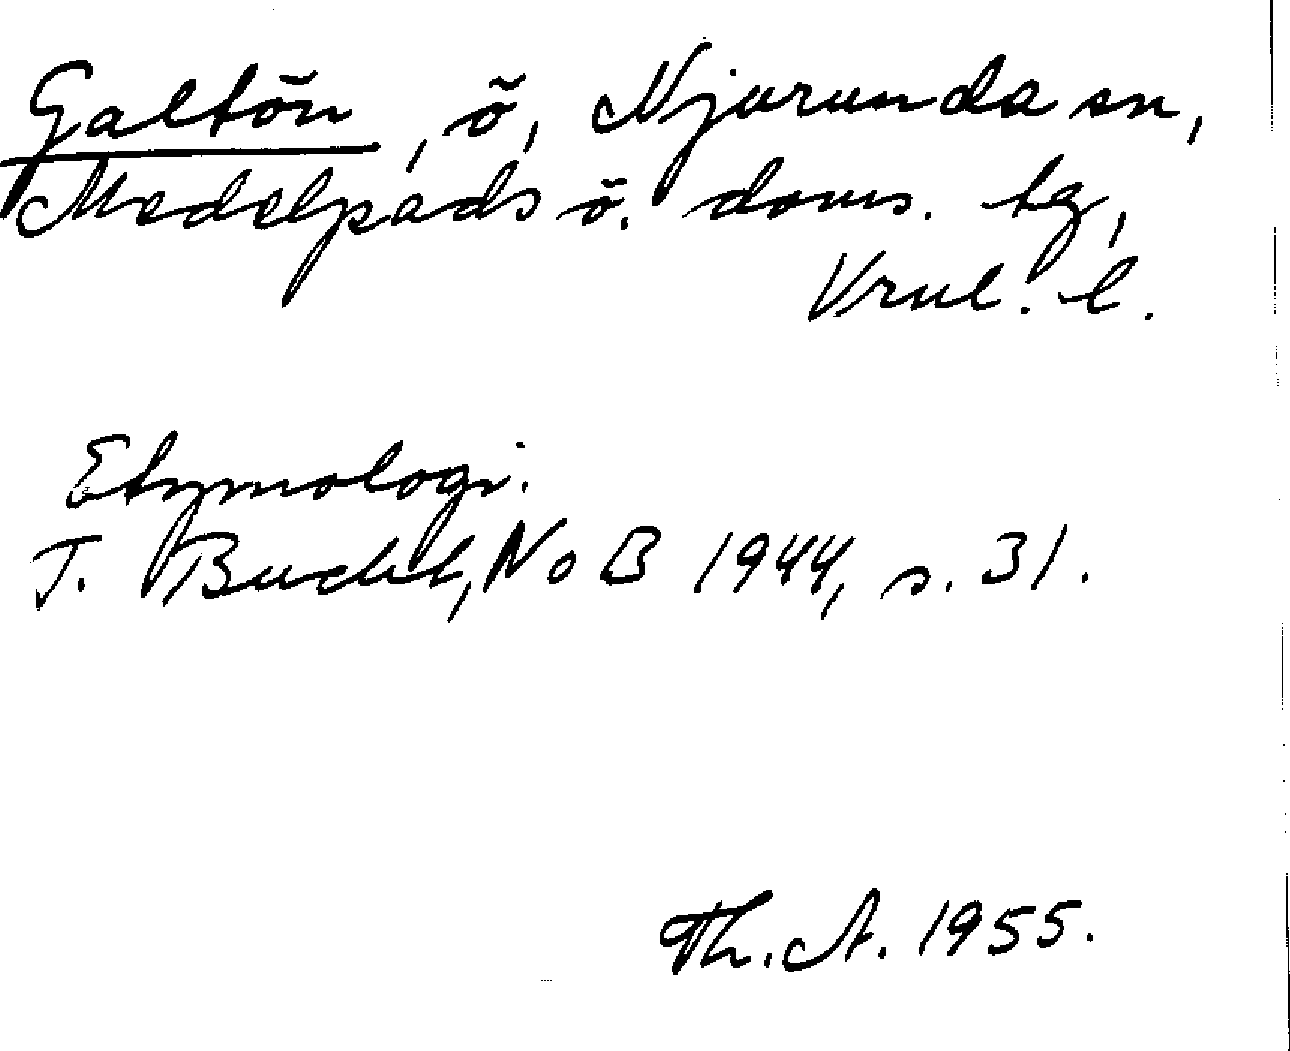 Galtön, ö, Njurunda sn,
Medelpads ö. doms. tg,
Vrnl. l.
Etymologi.
T. Bucht, NoB 1944, s. 31.
Th. A. 1955.